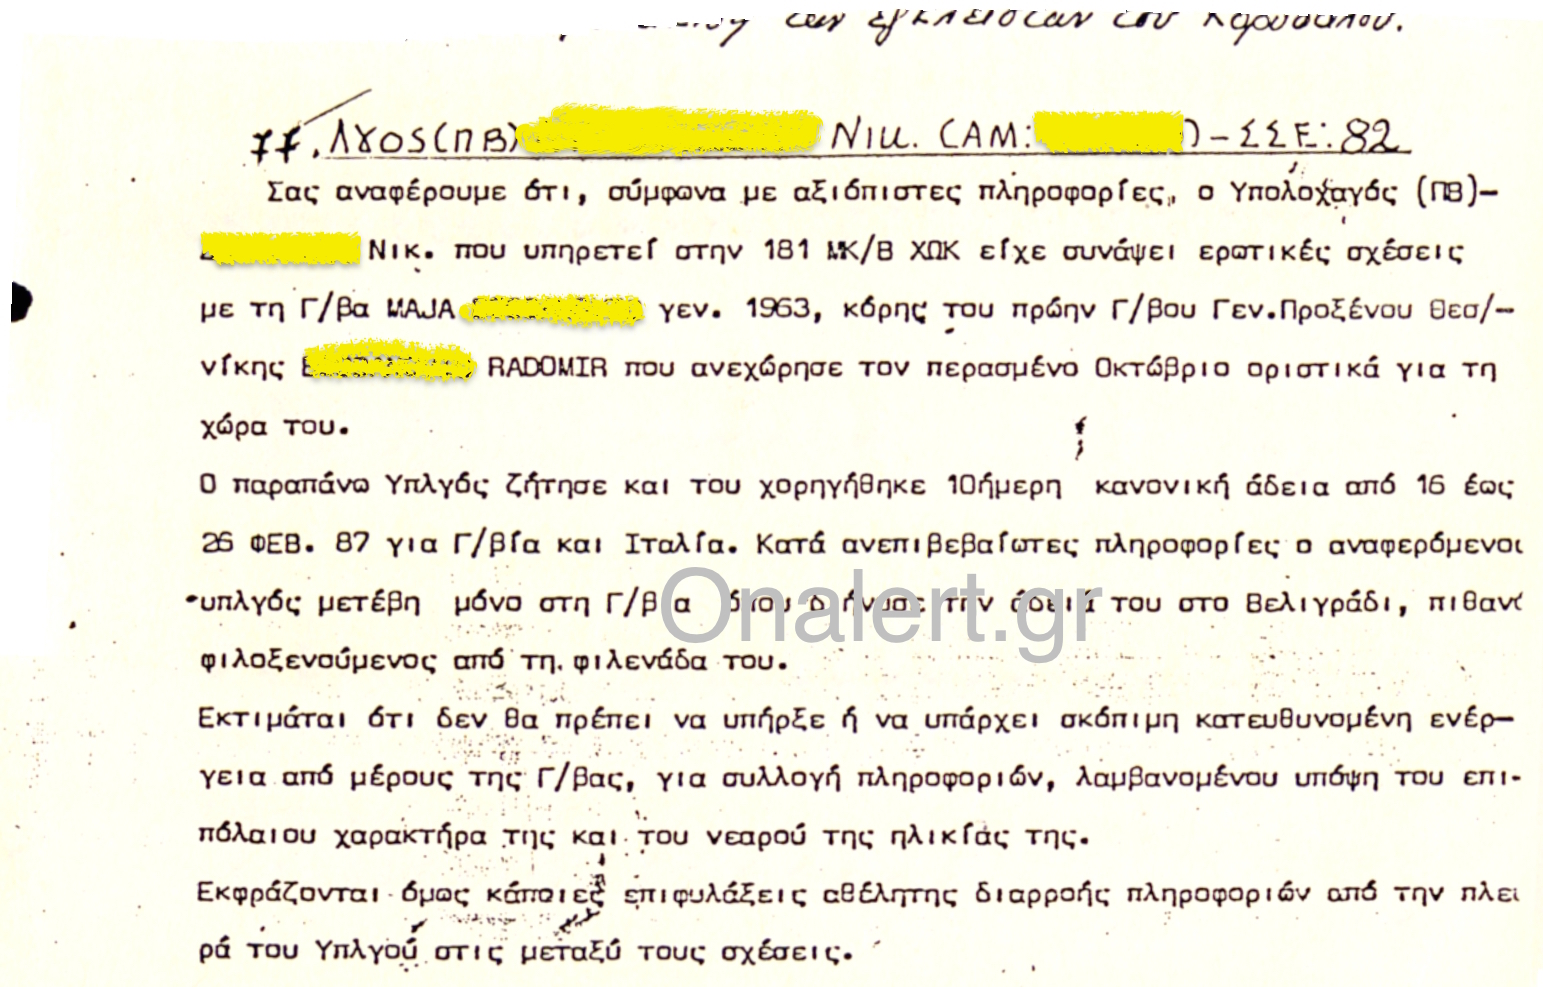 των εγκλείστων του Κορυδαλού.
77. ΛΓΟΣ(ΠΒ) Νικ. (ΑΜ: )-ΣΣΕ:82
Σας αναφέρουμε ότι, σύμφωνα με αξιόπιστες πληροφορίες, ο Υπολοχαγός (ΠΒ)-
Νικ. που υπηρετεί στην 181 ΜΚ/Β ΧΩΚ είχε συνάψει ερωτικές σχέσεις
με τη Γ/βα MAJA γεν. 1963, κόρης του πρώην Γ/βου Γεν.Προξένου Θεσ/-
νίκης RADOMIR που ανεχώρησε τον περασμένο Οκτώβριο οριστικά για τη
χώρα του.
Ο παραπάνω Υπλγός ζήτησε και του χορηγήθηκε 10ήμερη κανονική άδεια από 16 έως
26 ΦΕΒ. 87 για Γ/βία και Ιταλία. Κατά ανεπιβεβαίωτες πληροφορίες ο αναφερόμενοι
υπλγός μετέβη μόνο στη Γ/βία όπου διήνυσε την άδειά του στο Βελιγράδι, πιθανό
φιλοξενούμενος από τη φιλενάδα του.
Onalert.gr
Εκτιμάται ότι δεν θα πρέπει να υπήρξε ή να υπάρχει σκόπιμη κατευθυνομένη ενέρ-
γεια από μέρους της Γ/βας, για συλλογή πληροφοριών, λαμβανομένου υπόψη του επι-
πόλαιου χαρακτήρα της και του νεαρού της ηλικίας της.
Εκφράζονται όμως κάποιες επιφυλάξεις αθέλητης διαρροής πληροφοριών από την πλευ
ρά του Υπλγού στις μεταξύ τους σχέσεις.